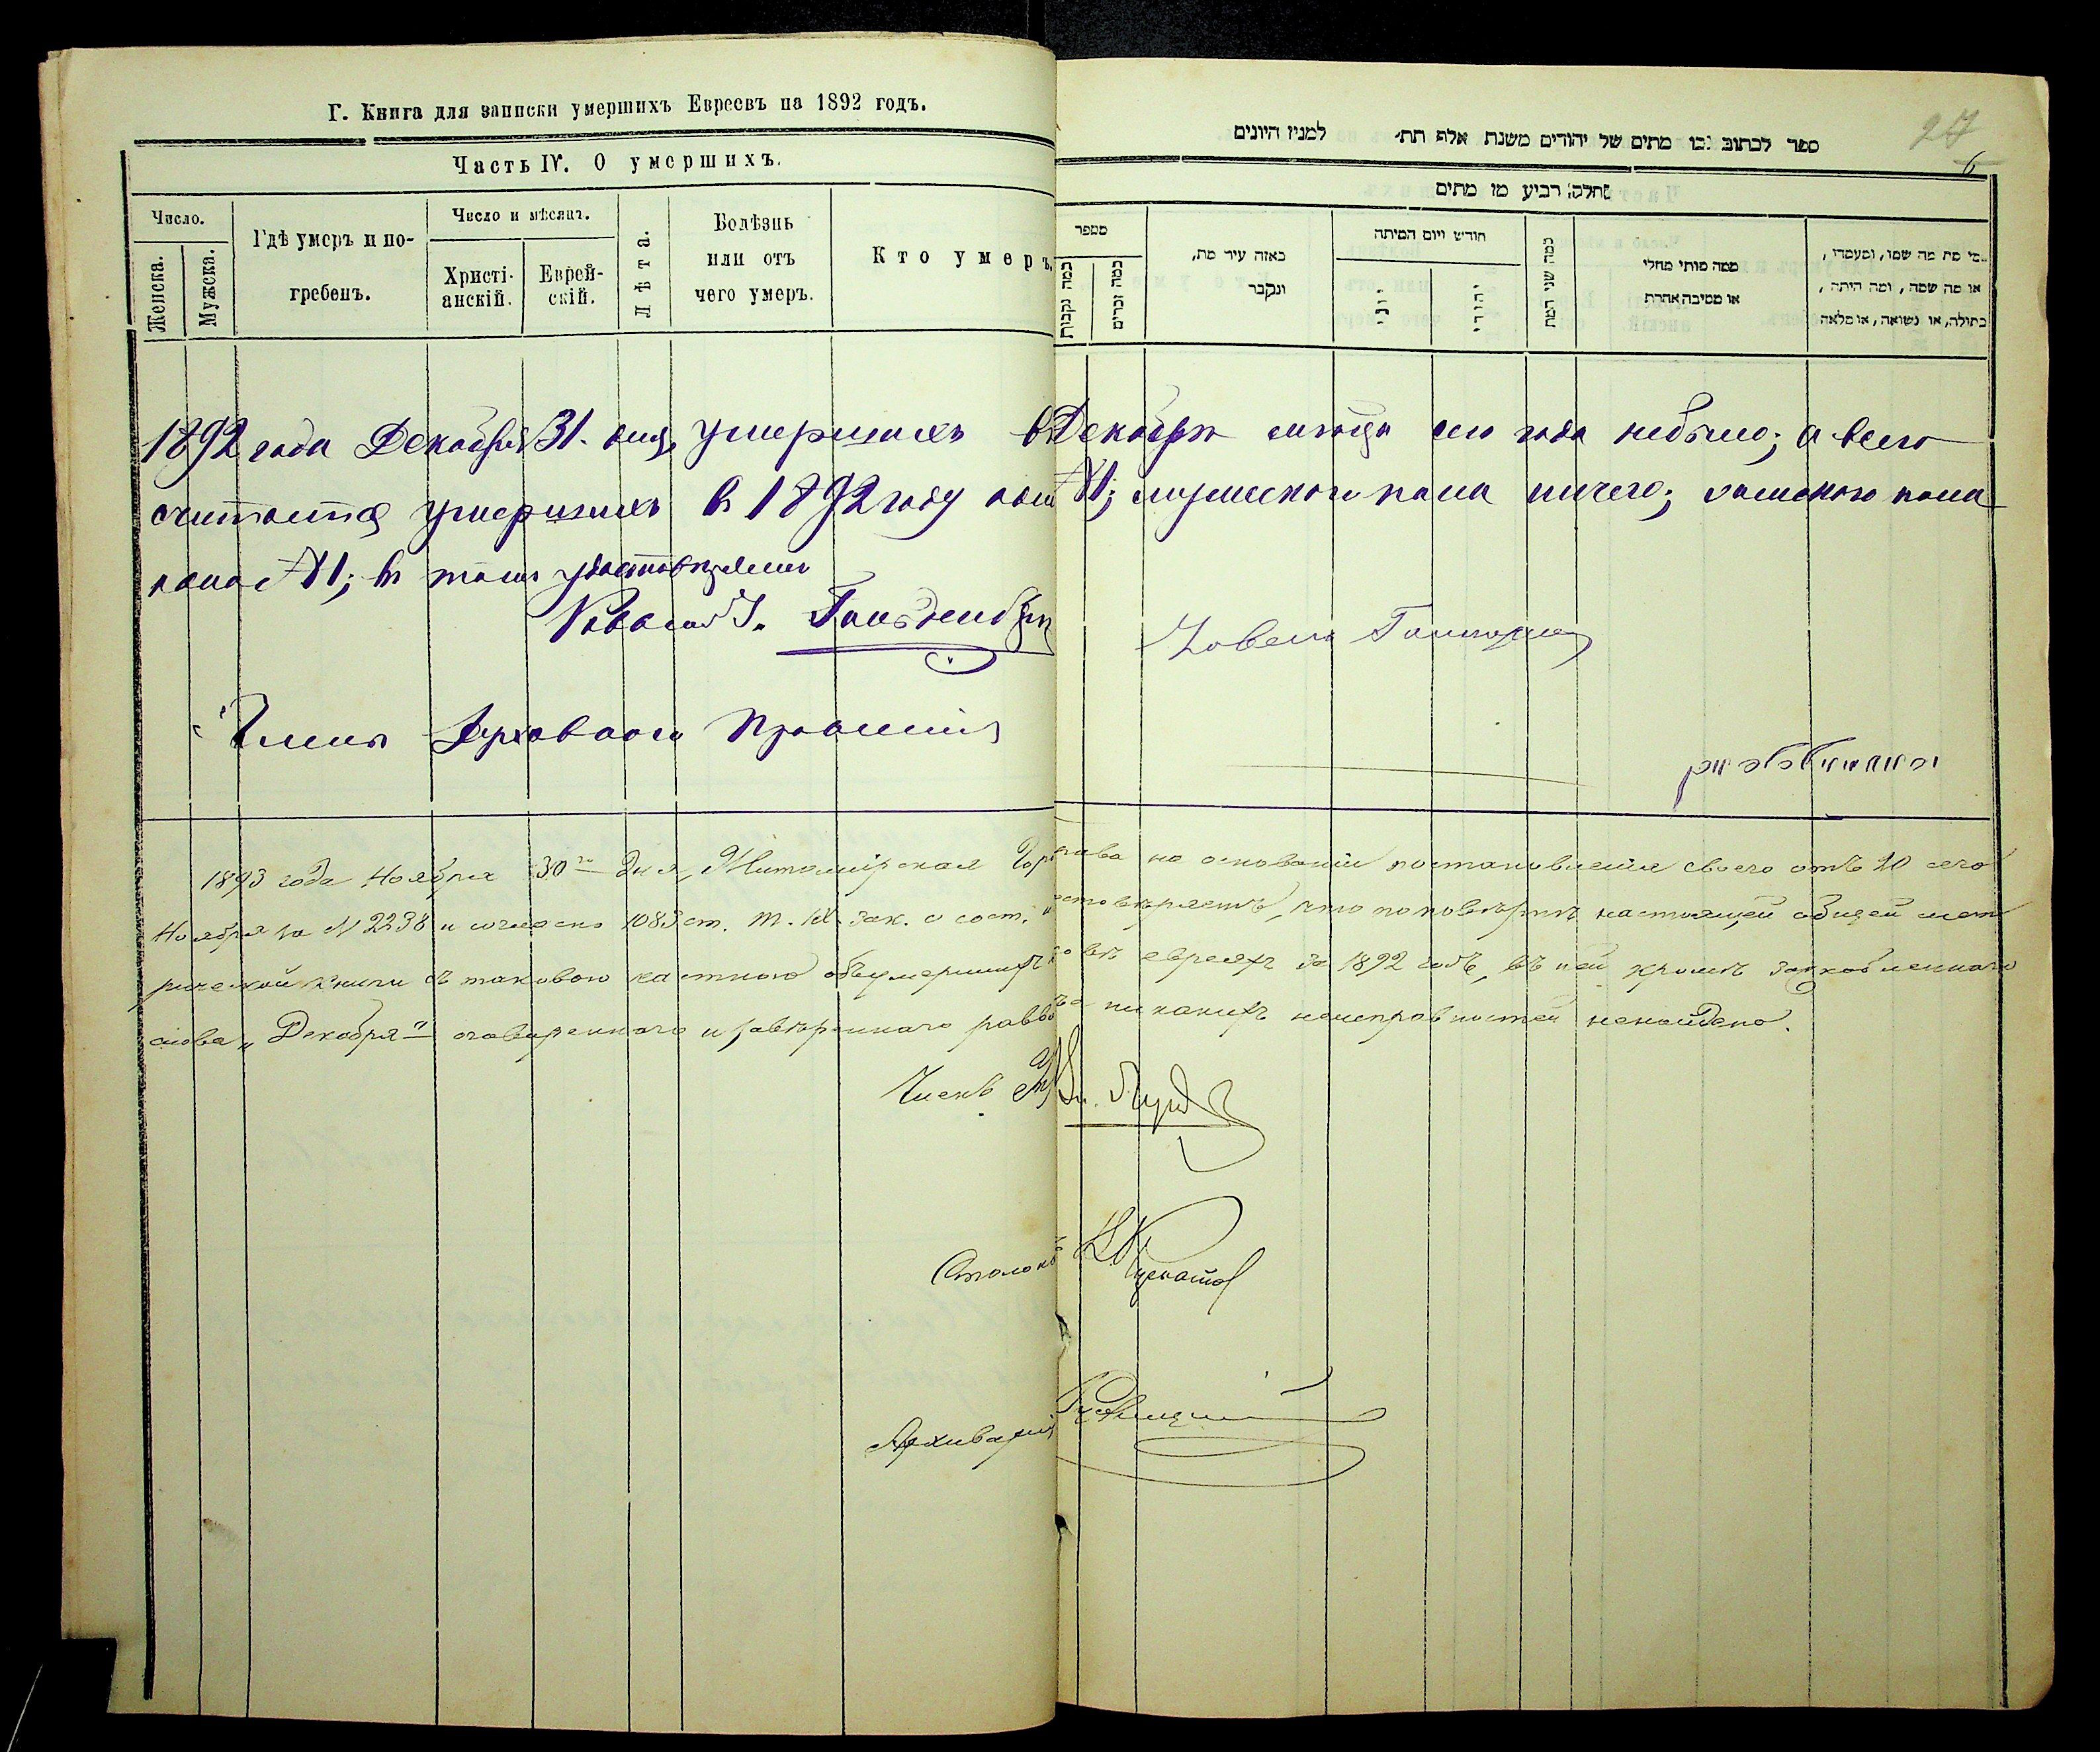 Г. Книга для записки умершихъ Евреевъ на 1892 годъ.
Часть IV. О умершихъ.
Число.
Женска.
Мужска.
Гдѣ умеръ и по-
гребенъ.
Число и мѣсяцъ.
Христі-
анскій.
Еврей-
скій.
Лѣта.
Болѣзнь
или отъ
чего умеръ.
Кто умеръ.
27
6
ספר לכתוב בו מתים של יהודים משנת אלף תת׳ למנין היונים
חלק רביע מן מתים
מספר
כמה נקבות
כמה זכרים
באזה עיר מת,
ונקבר
חודש ויום המיתה
יוני
יהודי
כמה שני המת
ממה מותי מחלי
או מסיבה אחרת
מי מת מה שמו, ומעמדו,
או מה שמה, ומה היתה,
בתולה, או נשואה, או מלאה
1892 года Декабря 31. дня, умершихъ въ Декабрѣ мѣсяцѣ сего года небыло; а всего
считается умершихъ въ 1892 году №1; мужескаго пола ничего; женскаго пола
№1; въ томъ удостовѣряемъ
Раввинъ
Члены Духовнаго Правленія
1893 года Ноября 30го дня, Житомірская Гор. Управа на основаніи постановленія своего отъ 20 сего
Ноября за N 2238 и согласно 1083 ст. т. IX зак. о сост. удостовѣряетъ, что по повѣркѣ настоящей общей мет
рической книги съ таковою частною объ умершихъ евреяхъ за 1892 годъ, въ ней кромѣ заскобленнаго
слова „Декабря" оговореннаго и завѣреннаго никакихъ неисправностей ненайдено.
Членъ
Столон
Архиваріусъ